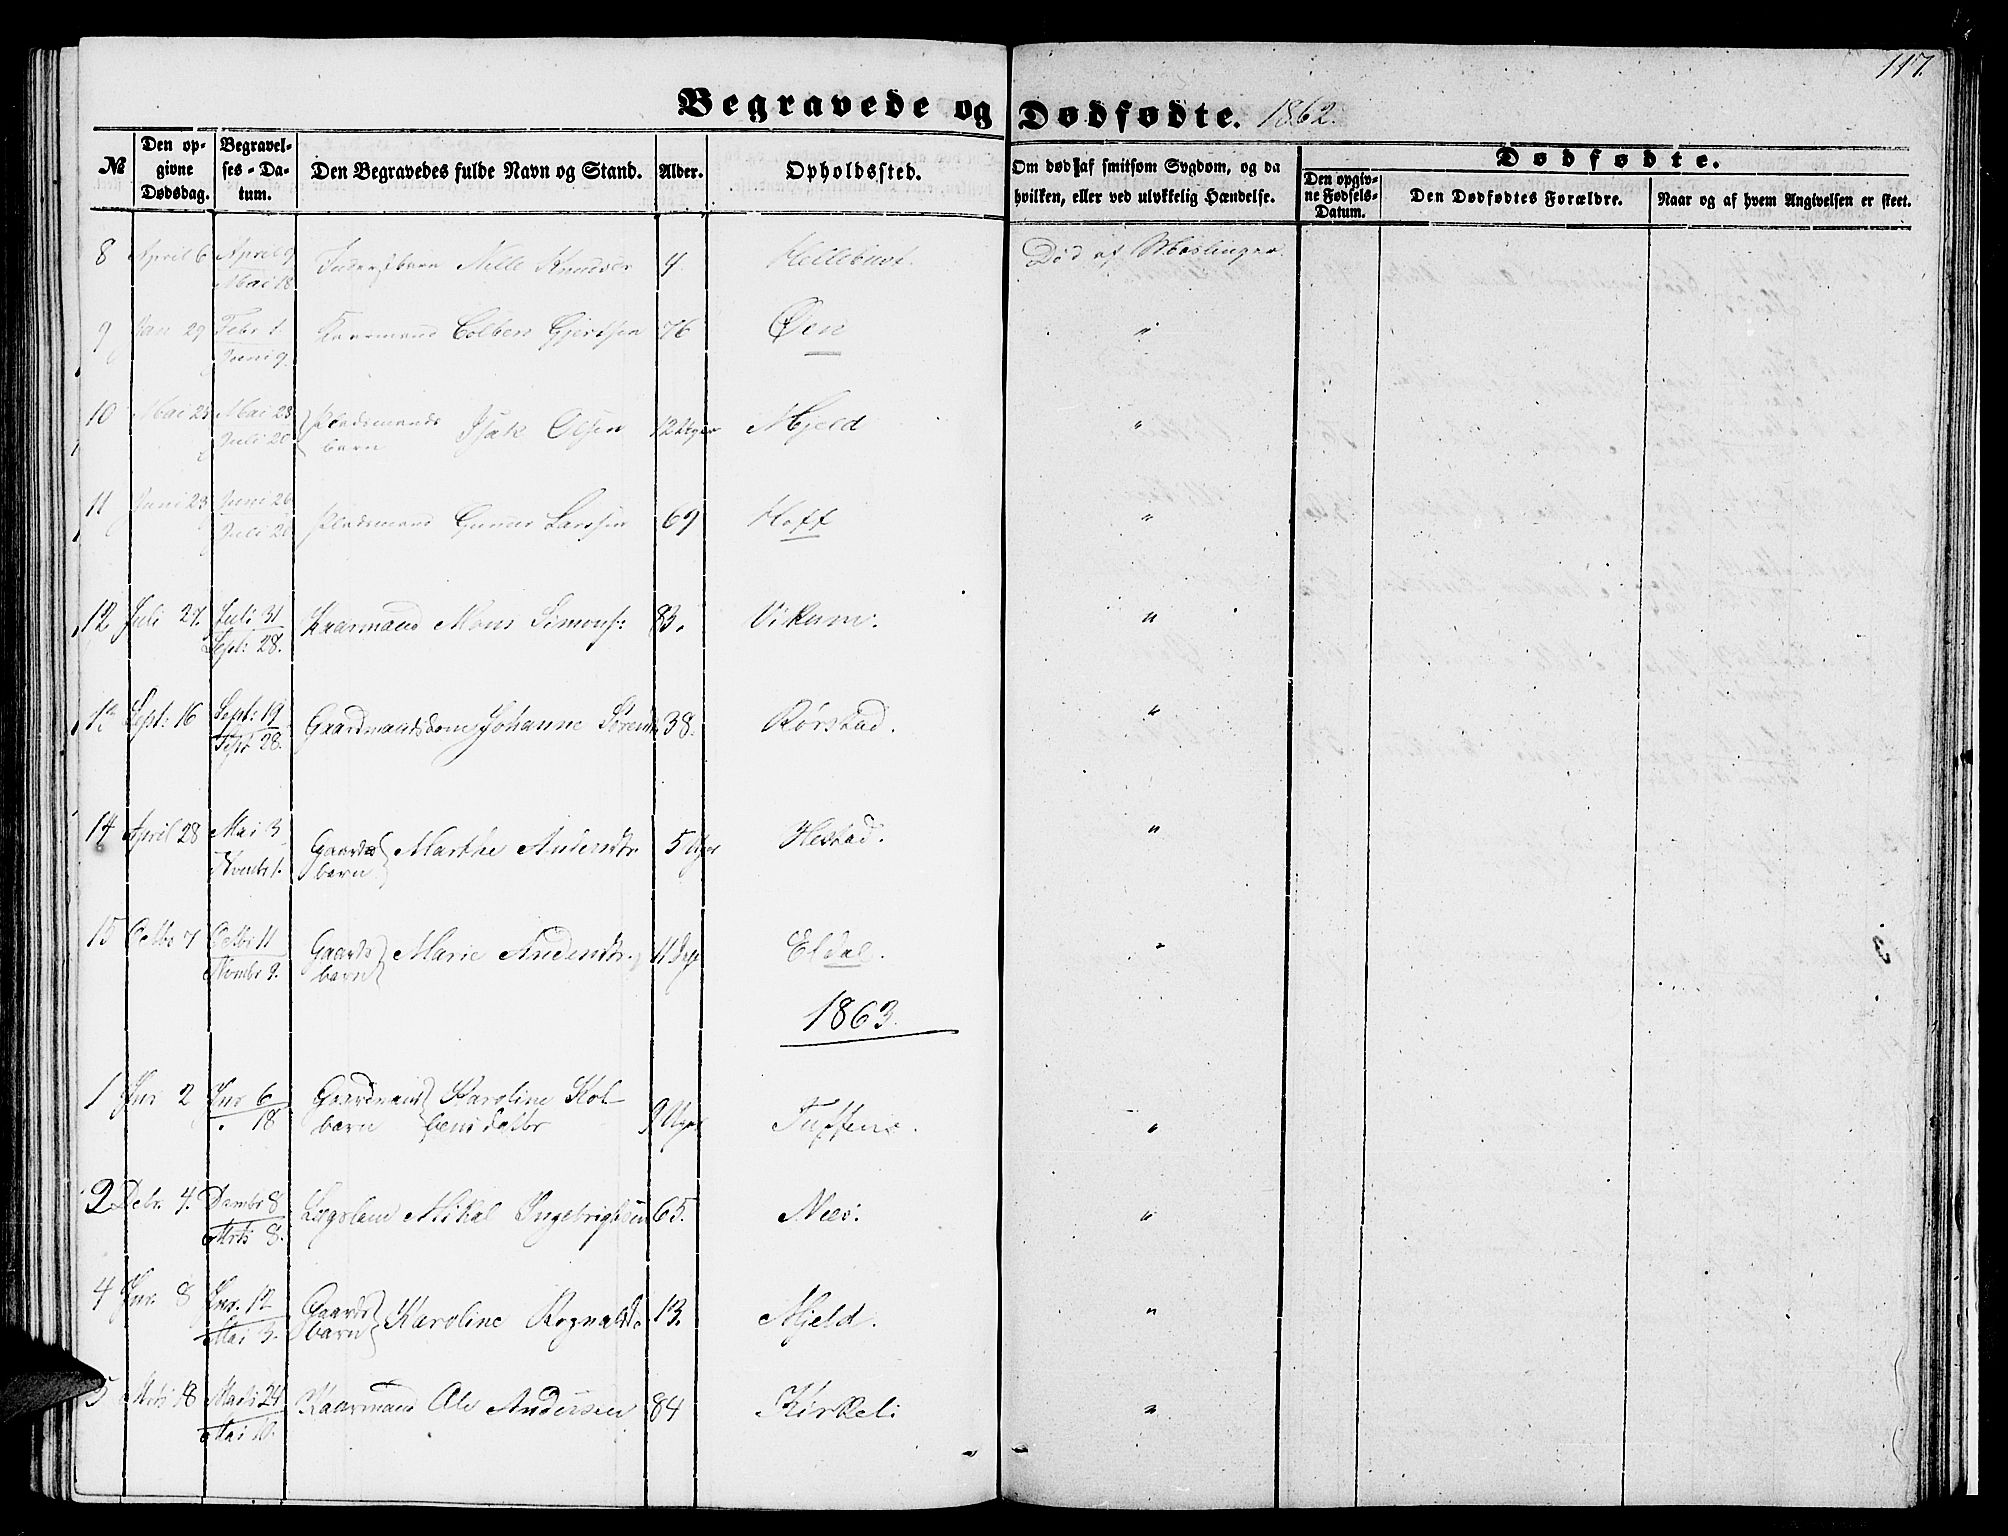 117.
Begravede og Dødfødte. 1862.
№
Den opgivne Dødsdag.
Begravelses-Datum.
Den Begravedes fulde Navn og Stand.
Alder.
Opholdssted.
Om død af smitsom Sygdom, og da hvilken, eller ved ulykkelig Hændelse.
Dødfødte.
Den opgivne Fødsels-Datum.
Den Dødfødtes Forældre.
Naar og af hvem Angivelsen er skeet.
8 April 6 April 9 Mai 18 Nille Knudsdr 4 Hellebust. Død af Meslinger.
9 Jan 29 Febr 1. Juni 9. Kaarmand Colben Gjertsen 76 Øen "
10 Mai 23 Mai 28 Juli 20 Pladsmands barn Isak Olsen 12 Uger Mjeld "
11 Juni 23 Juni 26 Juli 20 Pladsmand Gunner Larsen 69 Hoff "
12 Juli 27. Juli 31 Sept: 28. Kaarmand Mons Simons: 83. Vikum. "
Sept: 16 Sept: 19 Sept 28. Gaardmands Johanne 38. Rørstad. "
14 April 28 Mai 3 Novbr 1. Gaards barn Marthe 5 Uger Hestad. "
15 Octbr 7 Octbr 11 Novbr 9. Gaards barn Marie 11 Dage Eldal. "
1863.
1 Jnr 2 Jnr 6 " 18 Gaardmans barn Karoline Kolbensdatter 9 Uger Tuffene. "
2 Debr. 4. Dcmbr 8 Mrts 8. Lægslem Mikal Ingebrigtsen 65. Nees. "
4 Jnr. 8 Jnr. 12 Mai 3. Gaards barn Karoline Rognaldsd. 13. Mjeld. "
5 Mrts 18 Marts 24 Mai Kaarmand Ole Andersen 84 Kirkeli "